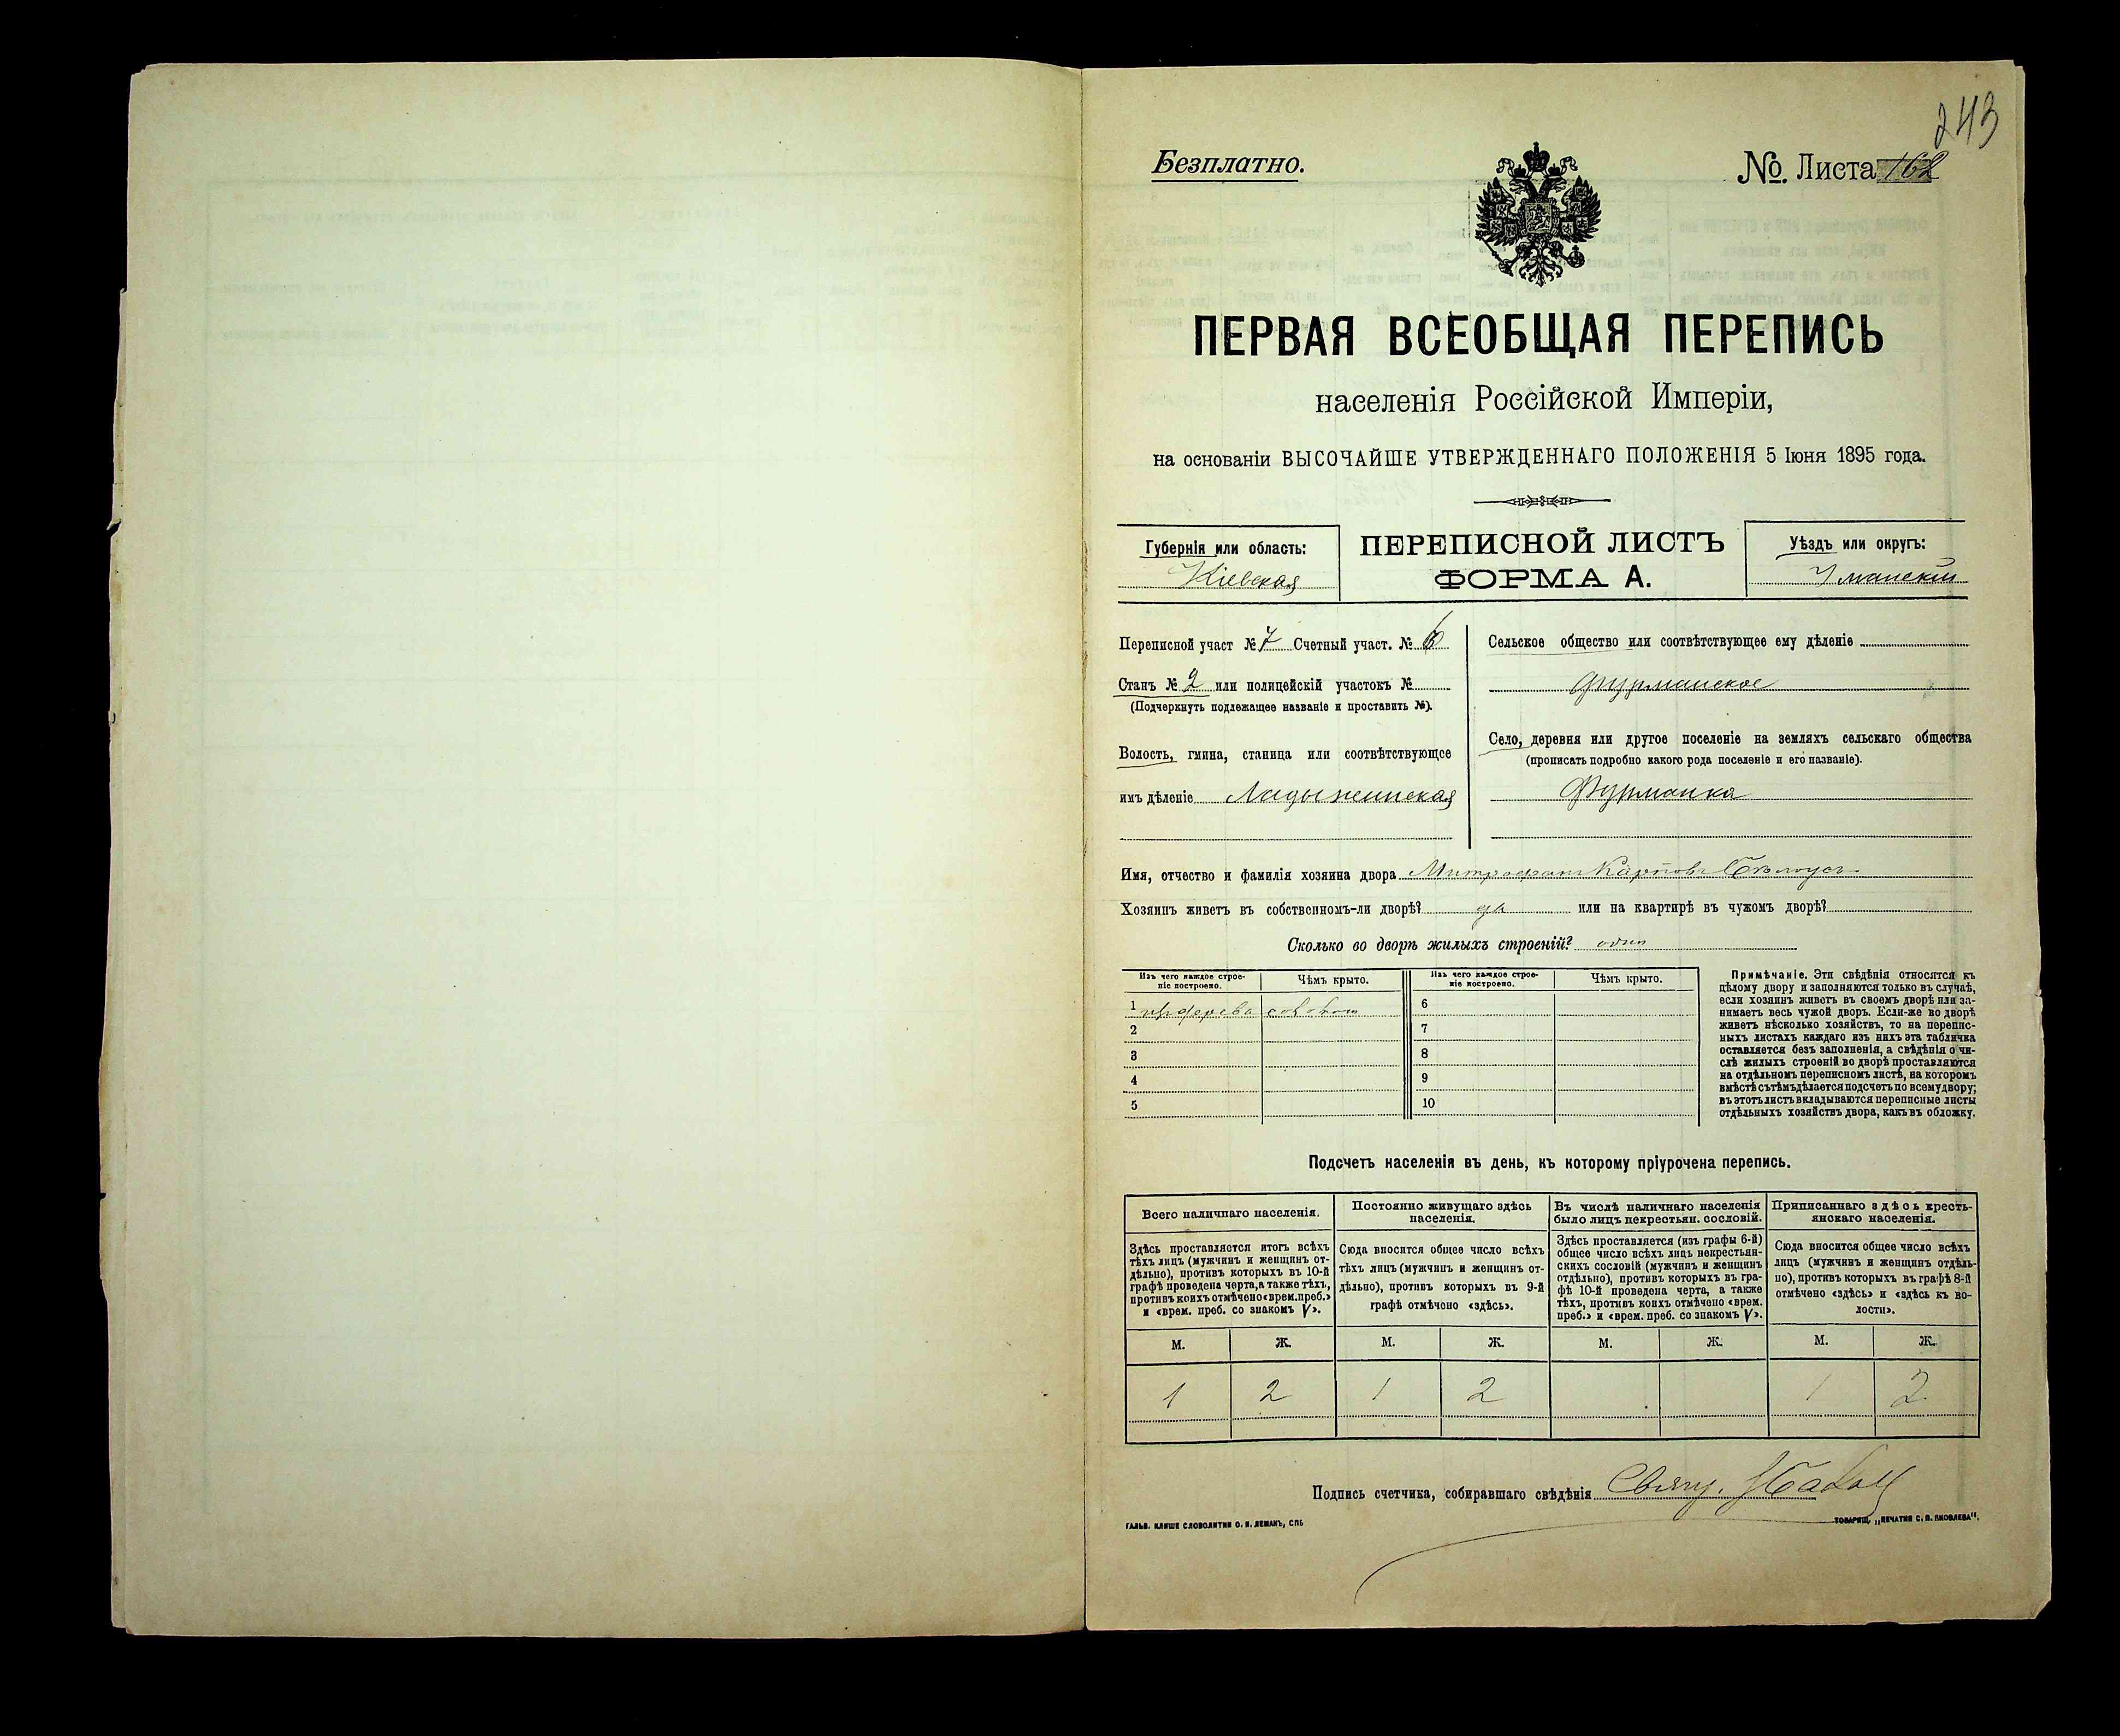 243
Безплатно.
№. Листа 162
ПЕРВАЯ ВСЕОБЩАЯ ПЕРЕПИСЬ
населенія Россійской Имперіи,
на основаніи ВЫСОЧАЙШЕ УТВЕРЖДЕННАГО ПОЛОЖЕНІЯ 5 Іюня 1895 года.
Губернія или область:
Кіевская
ПЕРЕПИСНОЙ ЛИСТЪ
ФОРМА А.
Уѣздъ или округъ:
Уманскій
Переписной участ № 7 Счетный участ. № 6
Станъ № 2 или полицейскій участокъ №
(Подчеркнуть подлежащее названіе и проставить №).
Волость, гмина, станица или соотвѣтствующее
имъ дѣленіе Ладыжинская
Сельское общество или соотвѣтствующее ему дѣленіе
Фурманское
Село, деревня или другое поселеніе на земляхъ сельскаго общества
(прописать подробно какого рода поселеніе и его названіе).
Фурманка
Имя, отчество и фамилія хозяина двора Митрофанъ Карповъ Бѣлоусъ
Хозяинъ живетъ въ собственномъ-ли дворѣ? да или на квартирѣ въ чужомъ дворѣ?
Сколько во дворѣ жилыхъ строеній? одно
Изъ чего каждое строе-
ніе построено.
Чѣмъ крыто.
Изъ чего каждое строе-
ніе построено.
Чѣмъ крыто.
1 изъ дерева соломою
2
3
4
5
6
7
8
9
10
Примѣчаніе. Эти свѣдѣнія относятся къ
цѣлому двору и заполняются только въ случаѣ,
если хозяинъ живетъ въ своемъ дворѣ или за-
нимаетъ весь чужой дворъ. Если-же во дворѣ
живетъ нѣсколько хозяйствъ, то на перепис-
ныхъ листахъ каждаго изъ нихъ эта табличка
оставляется безъ заполненія, а свѣдѣнія о чи-
слѣ жилыхъ строеній во дворѣ проставляются
на отдѣльномъ переписномъ листѣ, на которомъ
вмѣстѣ съ тѣмъ дѣлается подсчетъ по всему двору;
въ этотъ листъ вкладываются переписные листы
отдѣльныхъ хозяйствъ двора, какъ въ обложку.
Подсчетъ населенія въ день, къ которому пріурочена перепись.
Всего наличнаго населенія.
Здѣсь проставляется итогъ всѣхъ
тѣхъ лицъ (мужчинъ и женщинъ от-
дѣльно), противъ которыхъ въ 10-й
графѣ проведена черта, а также тѣхъ,
противъ коихъ отмѣчено «врем. преб.»
и «врем. преб. со знакомъ V».
Постоянно живущаго здѣсь
населенія.
Сюда вносится общее число всѣхъ
тѣхъ лицъ (мужчинъ и женщинъ от-
дѣльно), противъ которыхъ въ 9-й
графѣ отмѣчено «здѣсь».
Въ числѣ наличнаго населенія
было лицъ некрестьян. сословій.
Здѣсь проставляется (изъ графы 6-й)
общее число всѣхъ лицъ некрестьян-
скихъ сословій (мужчинъ и женщинъ
отдѣльно), противъ которыхъ въ гра-
фѣ 10-й проведена черта, а также
тѣхъ, противъ коихъ отмѣчено «врем.
преб.» и «врем. преб. со знакомъ V».
Приписаннаго здѣсь кресть-
янскаго населенія.
Сюда вносится общее число всѣхъ
лицъ (мужчинъ и женщинъ отдѣль-
но), противъ которыхъ въ графѣ 8-й
отмѣчено «здѣсь» и «здѣсь къ во-
лости».
М. Ж. М. Ж. М. Ж. М. Ж.
1 2 1 2 1 2
Подпись счетчика, собиравшаго свѣдѣнія Свящ.
ГАЛЬВ. КЛИШЕ СЛОВОЛИТНИ О. И. ЛЕМАНЪ, СПБ.
ТОВАРИЩ. „ПЕЧАТНЯ С. П. ЯКОВЛЕВА“.